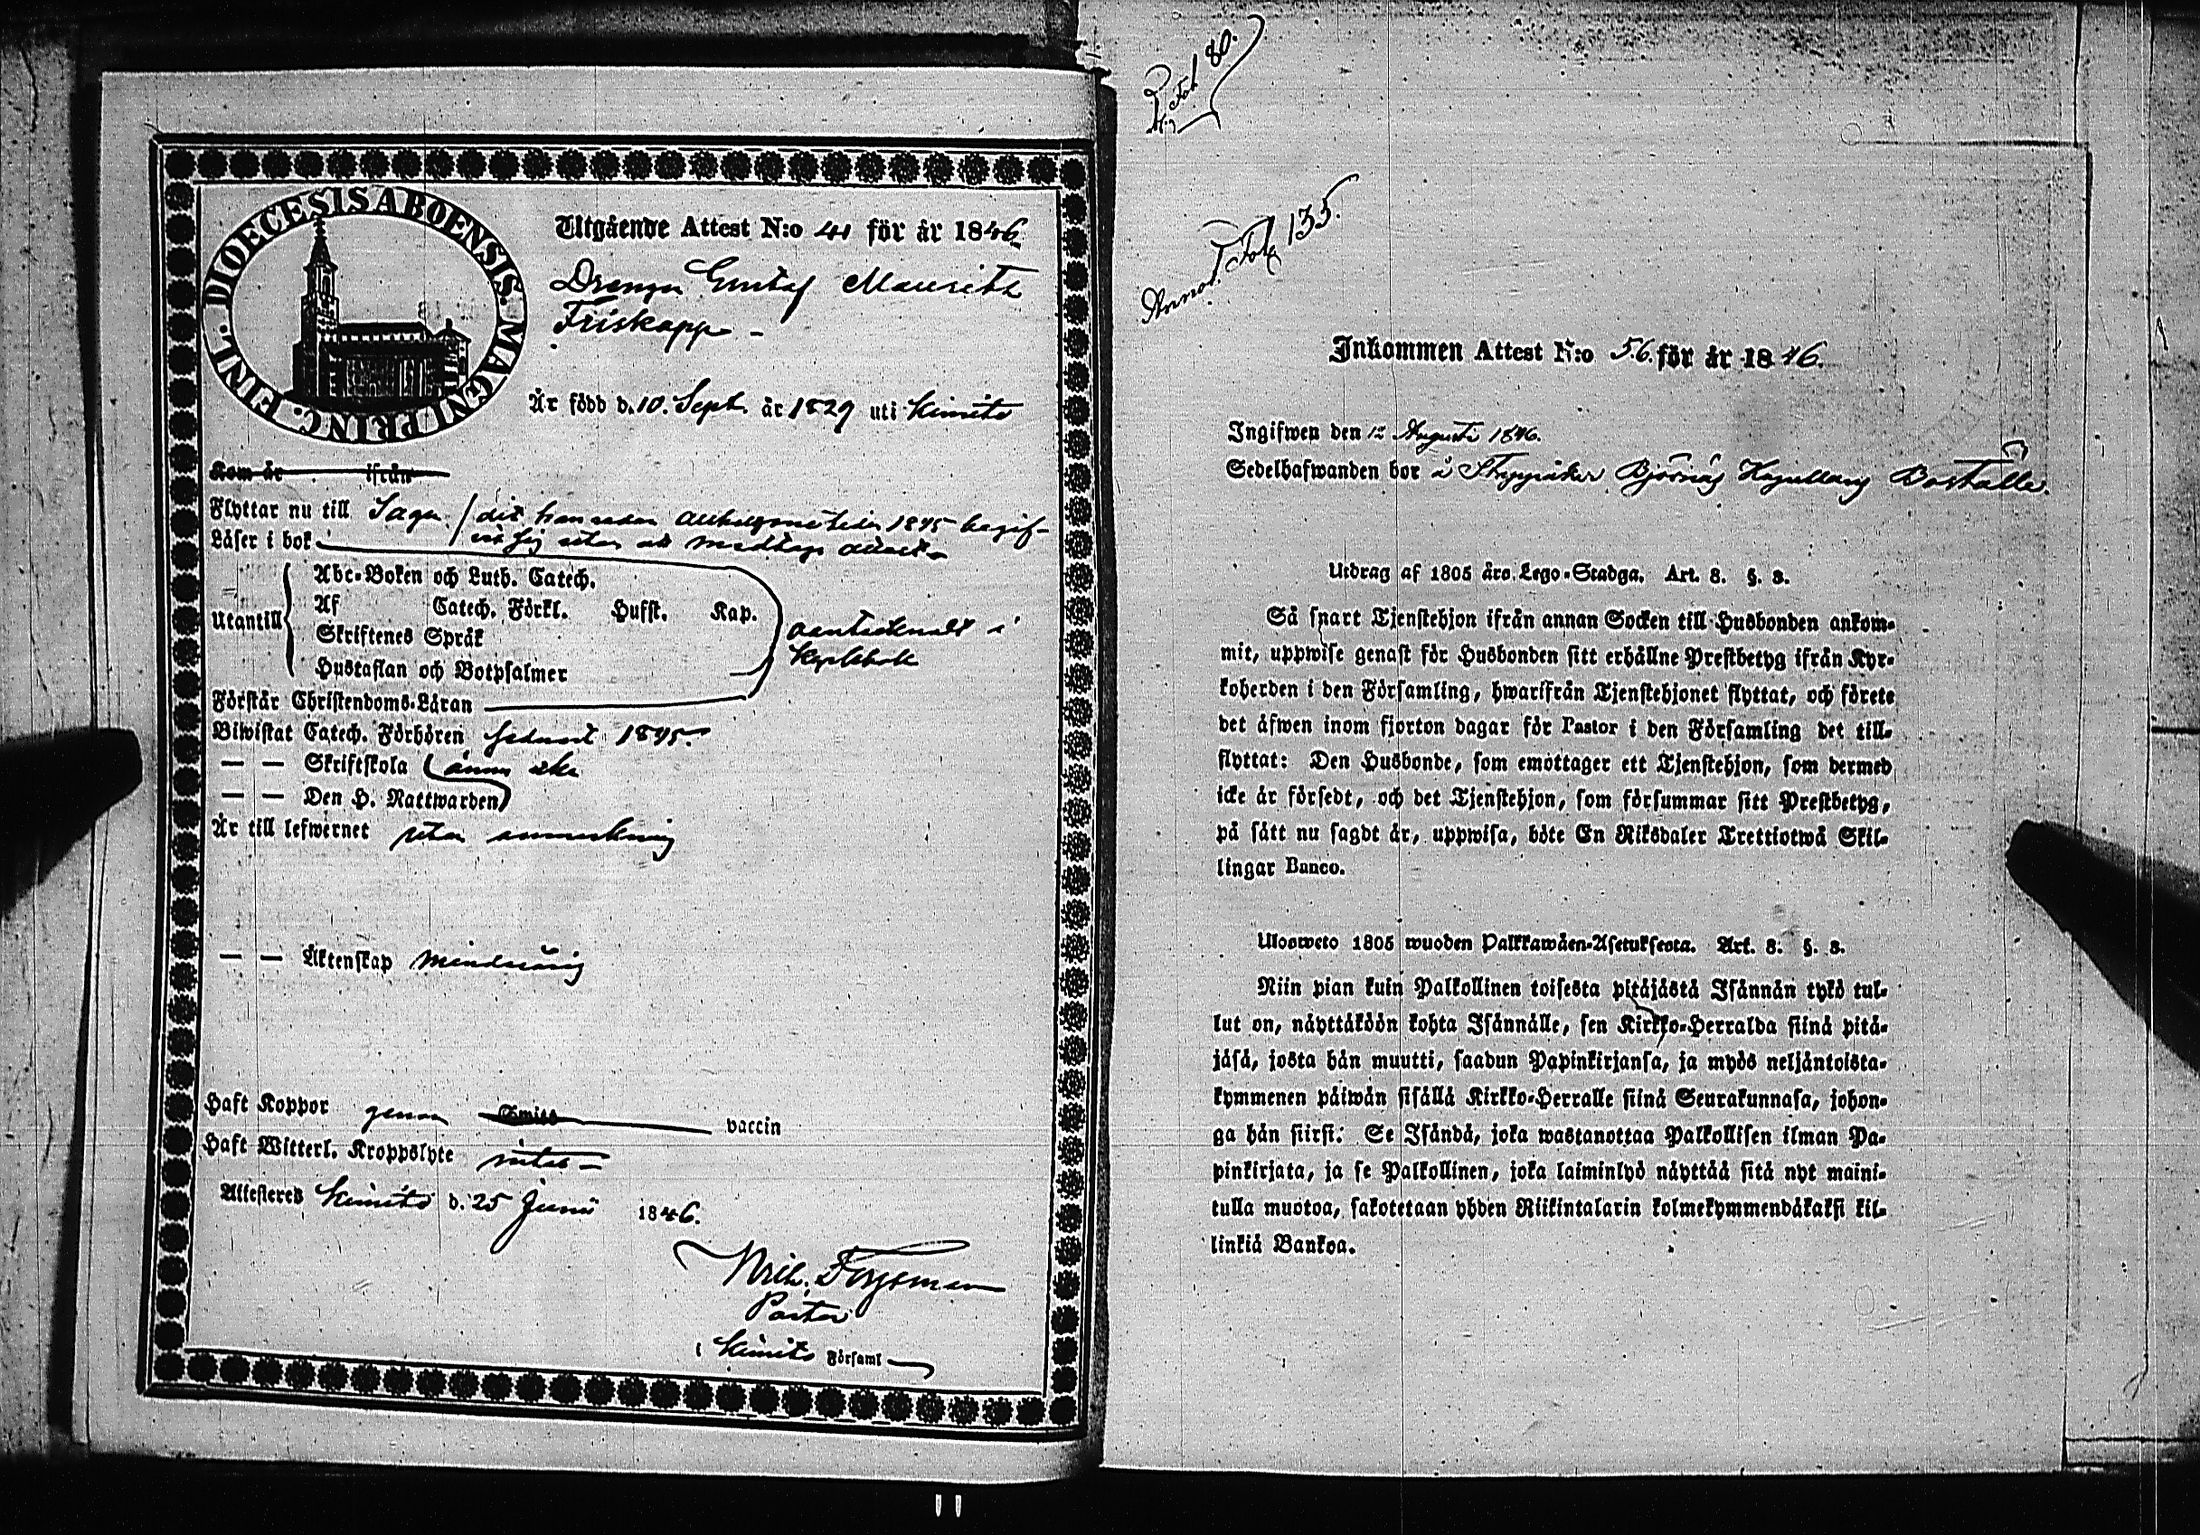 DIOECESIS ABOENSIS. MAGNI PRINC. FINL.
Utgående Attest N:o 41 för år 1846.
Drengen Gustaf Mauritz
Friskopp
Är född d. 10. Sept. år 1829 uti Kimito
Kom år ifrån
Flyttar nu till Sagu / dit han redan 1845 begif-
Läser i bok vit sig utan att attest
Utantill
Abc-Boken och Luth. Catech.
Af Catech. Förkl. Hufst. Kap.
Skriftenes Språk
Hustaflan och Botpsalmer
antecknadt i
Förstår Christendoms-Läran
Biwistat Catech. Förhören sednast 1845.
— — Skriftskola ännu icke
— — Den H. Nattwarden
Är till lefwernet utan anmerkning
— — Äktenskap minderårig
Haft Koppor genom Smitt vaccin
Haft Witterl. Kroppslyte intet
Attesteras Kimito d. 25 Junii 1846.
Pastor
i Kimito Församl
Fol 80.
Fol 135.
Inkommen Attest N:o 56. för år 1846.
Ingifwen den 12 Augusti 1846.
Sedelhafwanden bor å Björnäs Boställe.
Utdrag af 1805 års Lego-Stadga. Art. 8. §. 8.
Så snart Tjenstehjon ifrån annan Socken till Husbonden ankom-
mit, uppwise genast för Husbonden sitt erhållne Prestbetyg ifrån Kyr-
koherden i den Församling, hwarifrån Tjenstehjonet flyttat, och förete
det äfwen inom fjorton dagar för Pastor i den Församling det till-
flyttat: Den Husbonde, som emottager ett Tjenstehjon, som dermed
icke är försedt, och det Tjenstehjon, som försummar sitt Prestbetyg,
på sätt nu sagdt är, uppwisa, böte En Riksdaler Trettiotwå Skil-
lingar Banco.
Ulosweto 1805 wuoden Palkkawäen-Asetuksesta. Art. 8. §. 8.
Niin pian kuin Palkollinen toisesta pitäjästä Isännän tykö tul-
lut on, näyttäköön kohta Isännälle, sen Kirkko-Herralda siinä pitä-
jäsä, josta hän muutti, saadun Papinkirjansa, ja myös neljäntoista-
kymmenen päiwän sisällä Kirkko-Herralle siinä Seurakunnasa, johon-
ga hän siirsi: Se Isändä, joka wastanottaa Palkollisen ilman Pa-
pinkirjata, ja se Palkollinen, joka laiminlyö näyttää sitä nyt maini-
tulla muotoa, sakotetaan yhden Riikintalarin kolmekymmendäkaksi kil-
linkiä Bankoa.